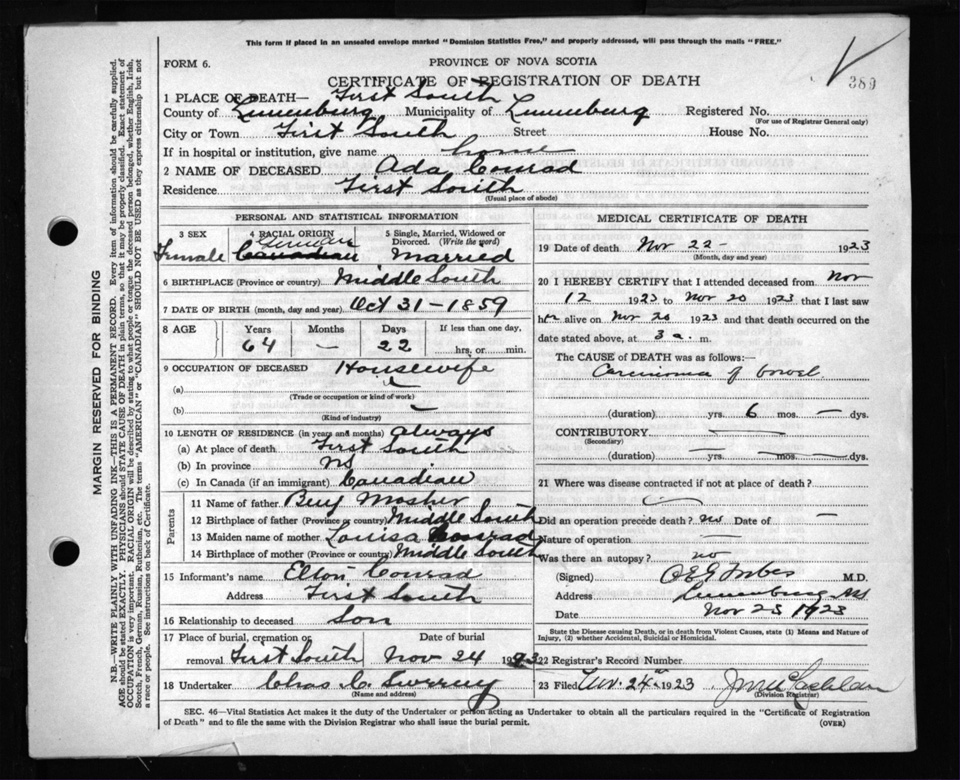 This form if placed in an unsealed envelope marked "Dominion Statistics Free," and properly addressed, will pass through the mails "FREE."
FORM 6.
PROVINCE OF NOVA SCOTIA
389
CERTIFICATE OF REGISTRATION OF DEATH
1 PLACE OF DEATH— First South
County of Lunenburg Municipality of Lunenburg Registered No.
(For use of Registrar General only)
City or Town First South Street House No.
If in hospital or institution, give name home
2 NAME OF DECEASED Ada Conrad
Residence First South
(Usual place of abode)
MARGIN RESERVED FOR BINDING
N.B.—WRITE PLAINLY WITH UNFADING INK—THIS IS A PERMANENT RECORD. Every item of information should be carefully supplied.
AGE should be stated EXACTLY. PHYSICIANS should STATE CAUSE OF DEATH in plain terms, so that it may be properly classified. Exact statement of
OCCUPATION is very important. RACIAL ORIGIN will be described by stating to what people or tongue the deceased person belonged, whether English, Irish,
Scotch, French, German, Russian, Ruthenian, etc. The terms "AMERICAN" or "CANADIAN" SHOULD NOT BE USED as they express citizenship but not
a race or people. See instructions on back of Certificate.
PERSONAL AND STATISTICAL INFORMATION
3 SEX
Female
4 RACIAL ORIGIN
German
Canadian
5 Single, Married, Widowed or
Divorced. (Write the word)
Married
6 BIRTHPLACE (Province or country) Middle South
7 DATE OF BIRTH (month, day and year) Oct 31 - 1859
8 AGE Years Months Days If less than one day,
64 — 22 hrs. or min.
9 OCCUPATION OF DECEASED Housewife
(a)
(Trade or occupation or kind of work)
(b)
(Kind of industry)
10 LENGTH OF RESIDENCE (in years and months) always
(a) At place of death First South
(b) In province NS
(c) In Canada (if an immigrant) Canadian
Parents
11 Name of father Benj Mosher
12 Birthplace of father (Province or country) Middle South
13 Maiden name of mother Louisa Conrad
14 Birthplace of mother (Province or country) Middle South
15 Informant's name Elton Conrad
Address First South
16 Relationship to deceased son
17 Place of burial, cremation or Date of burial
removal First South Nov 24 1923
18 Undertaker Chas C.
(Name and address)
MEDICAL CERTIFICATE OF DEATH
19 Date of death Nov 22 - 1923
(Month, day and year)
20 I HEREBY CERTIFY that I attended deceased from Nov
12 1923 to Nov 20 1923 that I last saw
her alive on Nov 20 1923 and that death occurred on the
date stated above, at 3 a. m.
The CAUSE OF DEATH was as follows:—
Carcinoma of bowel.
(duration) yrs. 6 mos. — dys.
CONTRIBUTORY —
(Secondary)
(duration) — yrs. — mos. — dys.
21 Where was disease contracted if not at place of death?
—
Did an operation precede death? no Date of —
Nature of operation —
Was there an autopsy? no
(Signed) Forbes M.D.
Address Lunenburg NS
Date Nov 23 1923
State the Disease causing Death, or in death from Violent Causes, state (1) Means and Nature of
Injury, (2) whether Accidental, Suicidal or Homicidal.
22 Registrar's Record Number
23 Filed Nov. 24th 1923
(Division Registrar)
SEC. 46—Vital Statistics Act makes it the duty of the Undertaker or person acting as Undertaker to obtain all the particulars required in the "Certificate of Registration
of Death" and to file the same with the Division Registrar who shall issue the burial permit.
(OVER)